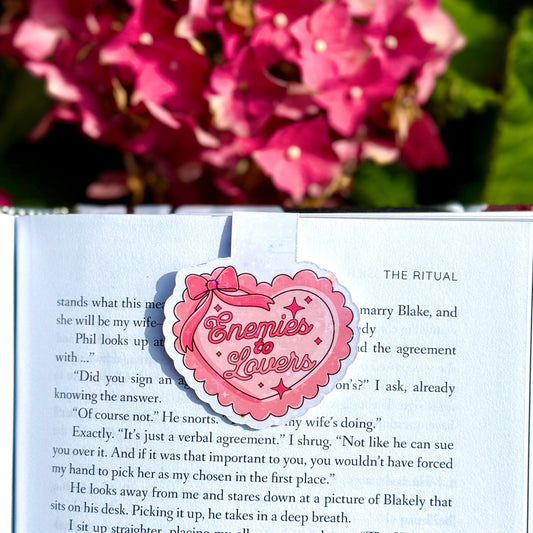 THE RITUAL
stands what this me marry Blake, and
she will be my wife- dy
Phil looks up at d the agreement
with ..."
"Did you sign an ag on's?" I ask, already
knowing the answer.
"Of course not." He snorts. my wife's doing."
Exactly. "It's just a verbal agreement." I shrug. "Not like he can sue
you over it. And if it was that important to you, you wouldn't have forced
my hand to pick her as my chosen in the first place."
He looks away from me and stares down at a picture of Blakely that
sits on his desk. Picking it up, he takes in a deep breath.
I sit up straighter, placing my
Enemies
to
Lovers